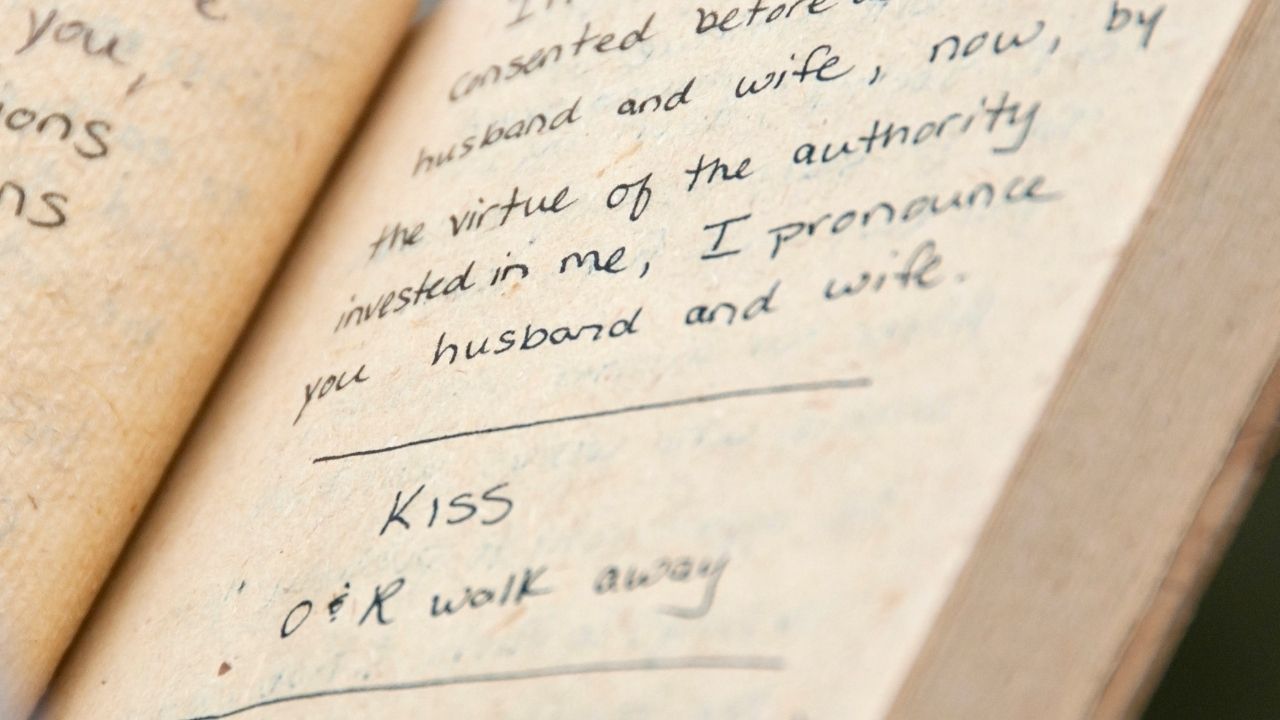 you,
ons
ns
consented before
husband and wife, now, by
the virtue of the authority
invested in me, I pronounce
you husband and wife.
KISS
O & R walk away